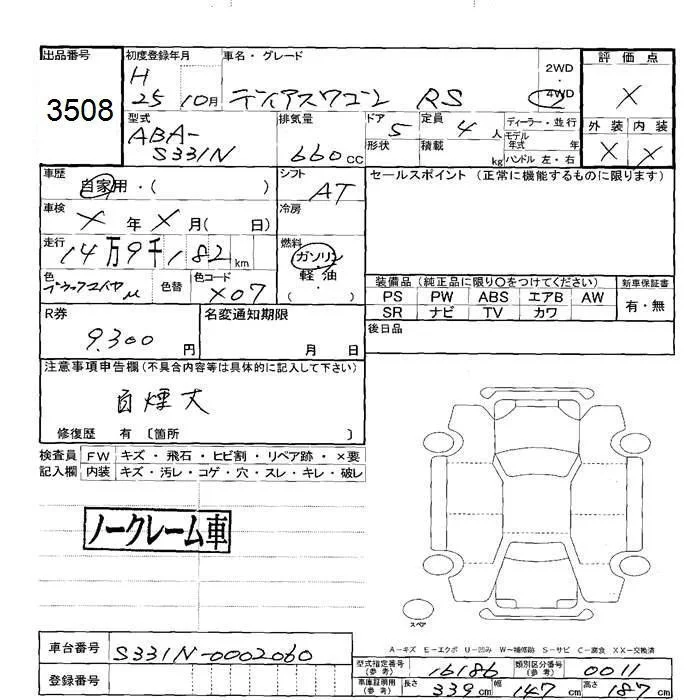 出品番号
3508
初度登録年月
H
25 10月
車名・グレード
ディアスワゴン RS
2WD
・
4WD
評価点
X
外装 内装
X X
型式
ABA-
S331N
排気量
660cc
ドア 5
定員 4人
ディーラー・並行
モデル年式 年
形状
積載 kg
ハンドル 左・右
車歴
自家用・( )
シフト
AT
セールスポイント (正常に機能するものに限ります)
車検
X年X月( 日)
冷房
走行
14万9千182km
燃料
ガソリン
軽油
( ・ )
色
色替
色コード
X07
装備品(純正品に限り○をつけてください)
PS PW ABS エアB AW
SR ナビ TV カワ
新車保証書
有・無
R券
9.300円
名変通知期限
月 日
後日品
注意事項申告欄(不具合内容等は具体的に記入して下さい)
修復歴 有 〔箇所 〕
検査員記入欄
FW キズ・飛石・ヒビ割・リペア跡・×要
内装 キズ・汚レ・コゲ・穴・スレ・キレ・破レ
ノークレーム車
スペア
A-キズ E-エクボ U-凹み W-補修跡 S-サビ C-腐食 XX-交換済
車台番号
S331N-0002060
登録番号
型式指定番号(参考) 16186
類別区分番号(参考) 0011
車庫証明用(参考) 長さ 339cm 幅 147cm 高さ 187cm